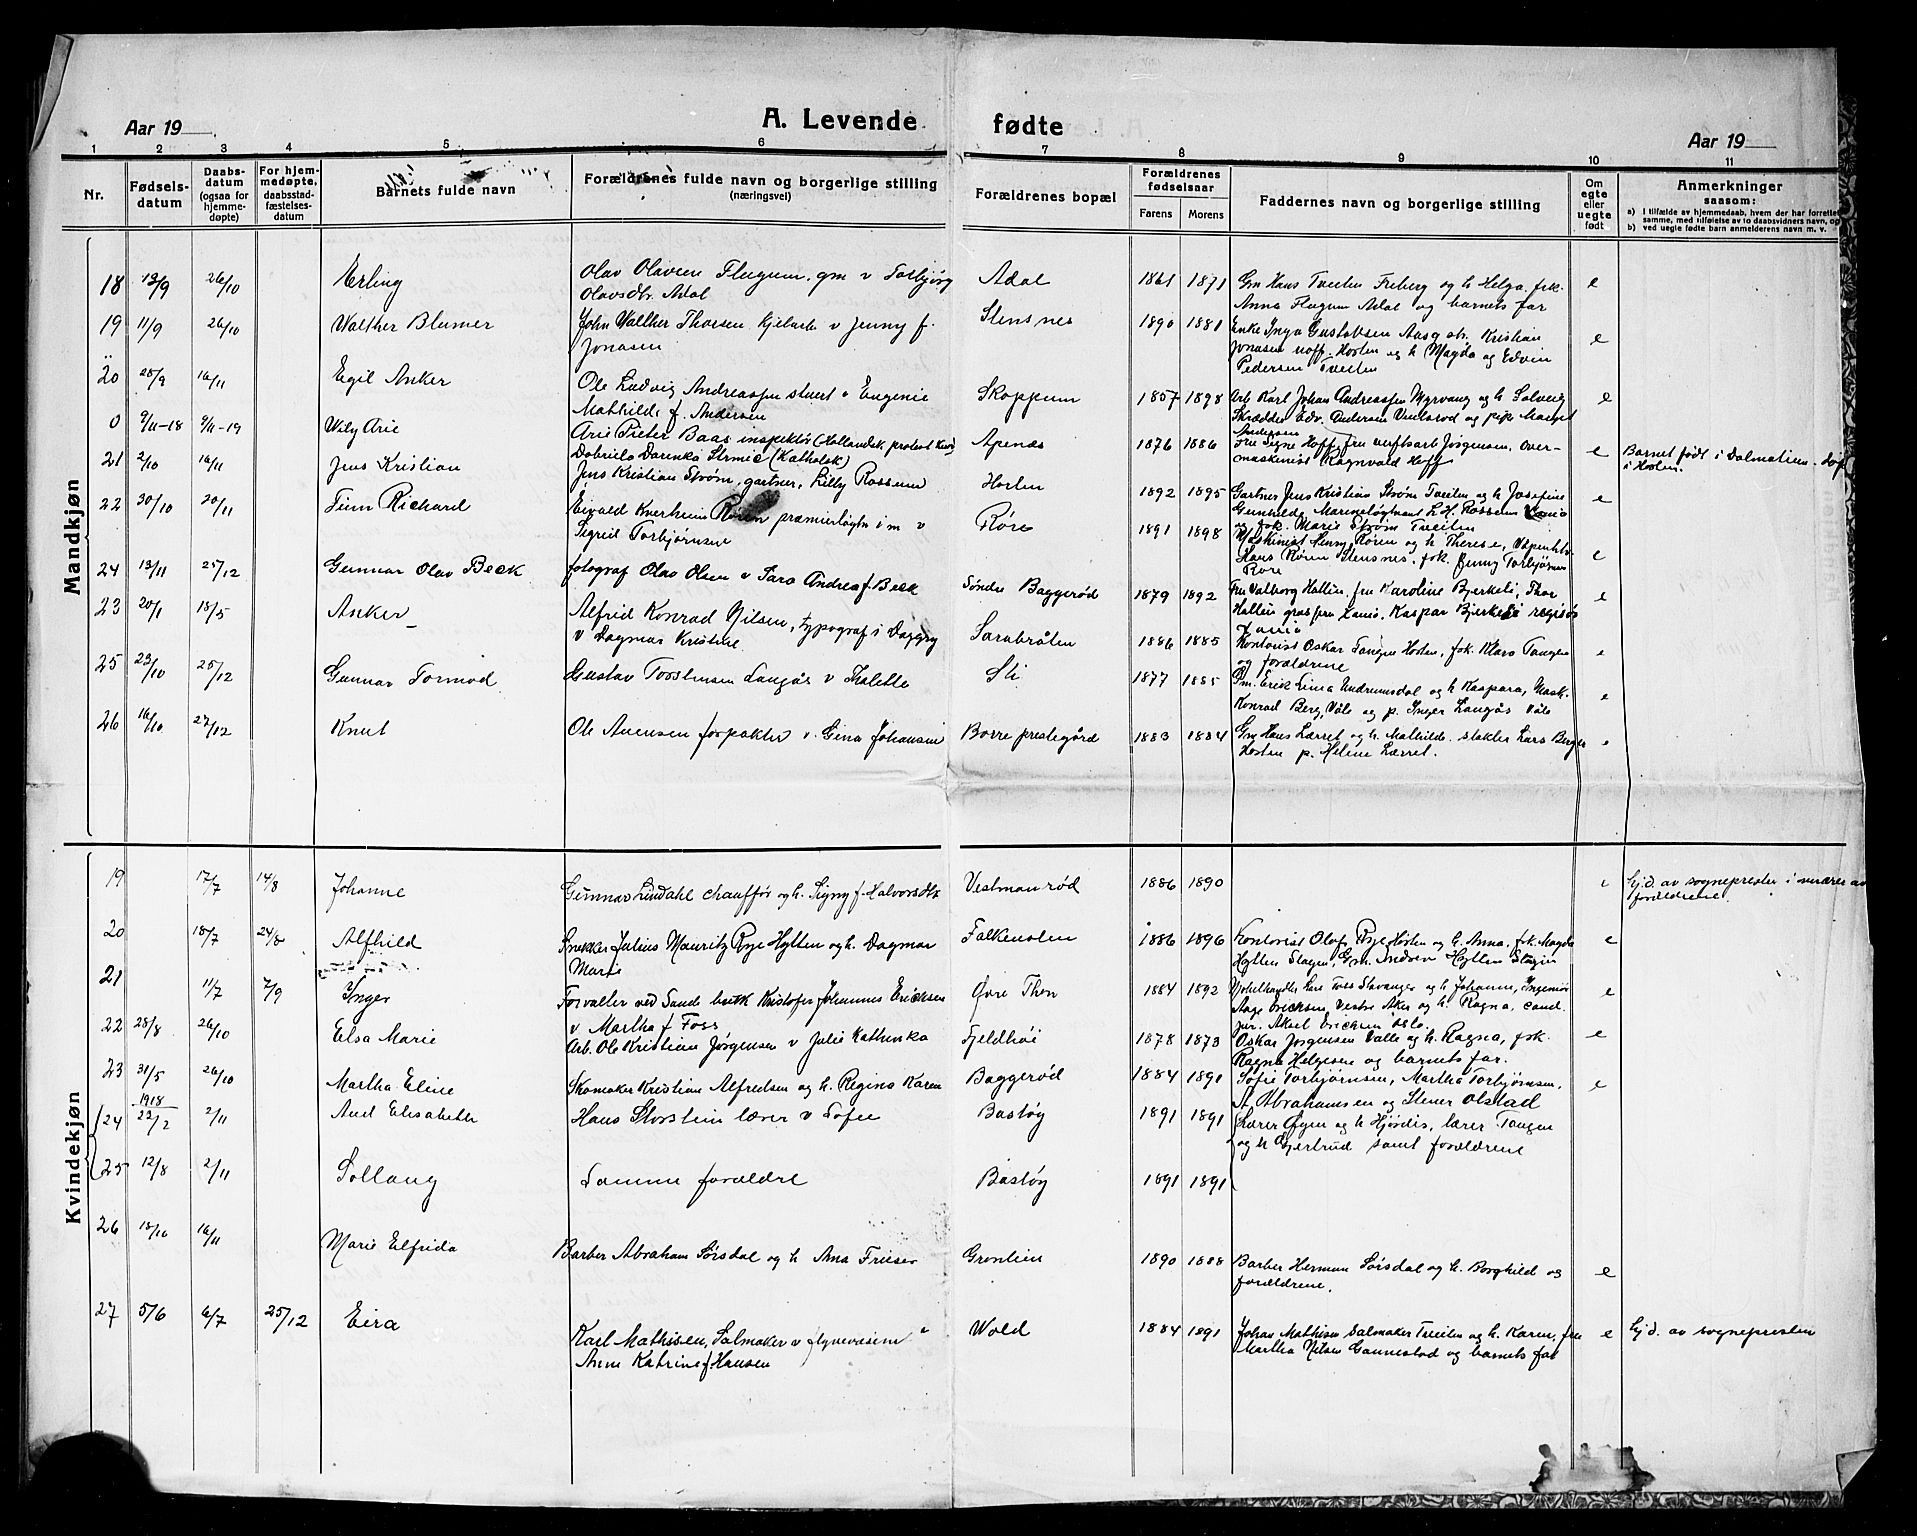 A. Levende fødte
Aar 19
Aar 19
1 2 3 4 5 6 7 8 9 10 11
Nr.
Fødsels-
datum
Daabs-
datum
(ogsaa for
hjemme-
døpte)
For hjem-
medøpte,
daabsstad-
fæstelses-
datum
Barnets fulde navn
Forældrenes fulde navn og borgerlige stilling
(næringsvei)
Forældrenes bopæl
Forældrenes
fødselsaar
Farens Morens
Faddernes navn og borgerlige stilling
Om
egte
eller
uegte
født
Anmerkninger
saasom:
a) I tilfælde av hjemmedaab, hvem der har forrettet
samme, med tilføielse av to daabsvidners navn, og
b) ved uegte fødte barn anmelderens navn m. v.
Mandkjøn
18 13/9 26/10 Erling
Olav Olavsen Flugum, gm v Torbjørg
Olavsdtr. Adal
Adal 1861 1871
Gm Hans Tveiten Freberg og h Helga. frk.
Anna Flugum Adal og barnets far
e
19 11/9 26/10 Walther Blumer
John Valther Thorsen kjelarb v Jenny f.
Jonasen
Stensnes 1890 1881
Enke Inga Gustavsen Aasg str. Kristian
Jonasen uoff. Horten og h Magda og Edvin
Pedersen Tveiten
e
20 28/9 16/11 Egil Anker
Ole Ludvig Andreassen stuert v Eugenie
Mathilde f. Andersen
Skoppum 1857 1898
Arb Karl Johan Andreassen Myrvang og h Solveig
Skrædder Edv. Andersen og pike Margit
Andersen
e
0 9/11-18 9/11-19 Wily Arie
Arie Pieter Baas inspektør (Hollandsk protest kirke)
Dobriela Darinka Strmic (Katholsk)
Apenæs 1876 1886
Fru Signe Hoff, fru verftsarb Jørgensen, over-
maskinist Ragnvald Hoff
e
Barnet født i Dalmatien. Døpt
i Horten.
21 2/10 16/11 Jens Kristian
Jens Kristian Strøm, gartner, Lilly Rossum
Horten 1892 1895
Gartner Jens Kristian Strøm Tveiten og h Josefine
Gunhilde Marineløgtnant L.H. Rossum
og frk. Marie Strøm Tveiten
e
22 30/10 20/11 Finn Richard
Eivald Kverheim Røren præmierløgtn i m v
Sigrid Torbjørnsen
Røre 1891 1898
Maskinist Henry Røren og h Therese,
Hans Røren Stensnes, frk. Jenny Torbjørnsen
Røre
e
24 13/11 25/12 Gunnar Olav Beck
fotograf Olav Olsen v Sara Andrea f. Beck
Søndre Baggerød 1879 1892
Fru Valborg Hallin, fru Karoline Bjerkeli, Thor
Hallin Kaspar Bjerkeli regisør
e
23 20/1 18/5 Anker
Alfrid Konrad Nilsen, typograf i Daggry
v Dagmar Kristine
Sarabråten 1886 1885
Kontorist Oskar Tangen Horten, frk. Klara Tangen
og forældrene
e
25 23/10 25/12 Gunnar Tormod
Gustav Torstensen Langås v Thalette
Sti 1877 1885
Gm. Erik Lima Undrumsdal og h Kaspara, Mask.
Konrad Berg, Våle og p. Inger Langås Våle
e
26 16/10 27/12 Knut
Ole Auensen forpakter v. Gina Johansen
Borre prestegård 1883 1884
Gm Hans Lærret og h Mathilde. stakler Lars Berger
Horten p. Helene Lærret.
e
Kvindekjøn
19 17/7 14/8 Johanne
Gunnar Lindahl chauffør og h. Signy f. Halvorsdtr
Vestmanrød 1886 1890
e
hj.d. av sognepresten i nærvær av
forældrene.
20 18/7 24/8 Alfhild
Snekker Julius Mauritz Rye Hytten og h. Dagmar
Marie
Falkensten 1886 1896
Kontorist Olaf Rye Horten og h. Anna, frk. Magda
Hytten Slagen, Gm. Hytten Slagen
e
21 11/7 7/9 Inger
Forvalter ved Sande bruk Kristofer Johannes Ericksen
v. Martha f Foss
Øvre Thon 1884 1892
Lars Foss Stavanger og h Johanne, Ingeniør
Aage Ericksen, Vestre Aker og h. Ragna, cand.
jur. Aksel Ericksen Oslo.
e
22 28/8 26/10 Elsa Marie
Arb. Ole Kristian Jørgensen v Julie Kathinka
Fjeldhøi 1878 1873
Oskar Jørgensen Valle og h. Ragna, frk.
Ragna Helgesen og barnets far.
e
23 31/5 26/10 Martha Eline
Skomaker Kristian Alfredsen og h. Regina Karen
Baggerød 1884 1891
Sofie Torbjørnsen, Martha Torbjørnsen,
A. Abrahamsen og Stener Olstad
e
24 1918 22/2 2/11 Aud Elisabeth
Hans Storstein lærer v Sofie
Bastøy 1891 1891
Lærer Øyen og h Hjørdis, lærer Tangen
og h Gjertrud samt forældrene
25 12/8 2/11 Sollaug
Samme forældre
Bastøy 1891 1891
26 18/10 16/11 Marie Elfrida
Barber Abraham Sørsdal og h Anna Friese
Grønlien 1890 1888
Barber Herman Sørsdal og h. Borghild og
forældrene.
e
27 5/6 6/7 25/12 Eira
Karl Mathisen, Salmaker v flyvevæsenet
Anne Katrine f Hansen
Wold 1884 1891
Johan Mathisen Salmaker Tveiten og h. Karen, fru
Martha Nilsen Gannestad og barnets far
e
hj.d. av sognepresten